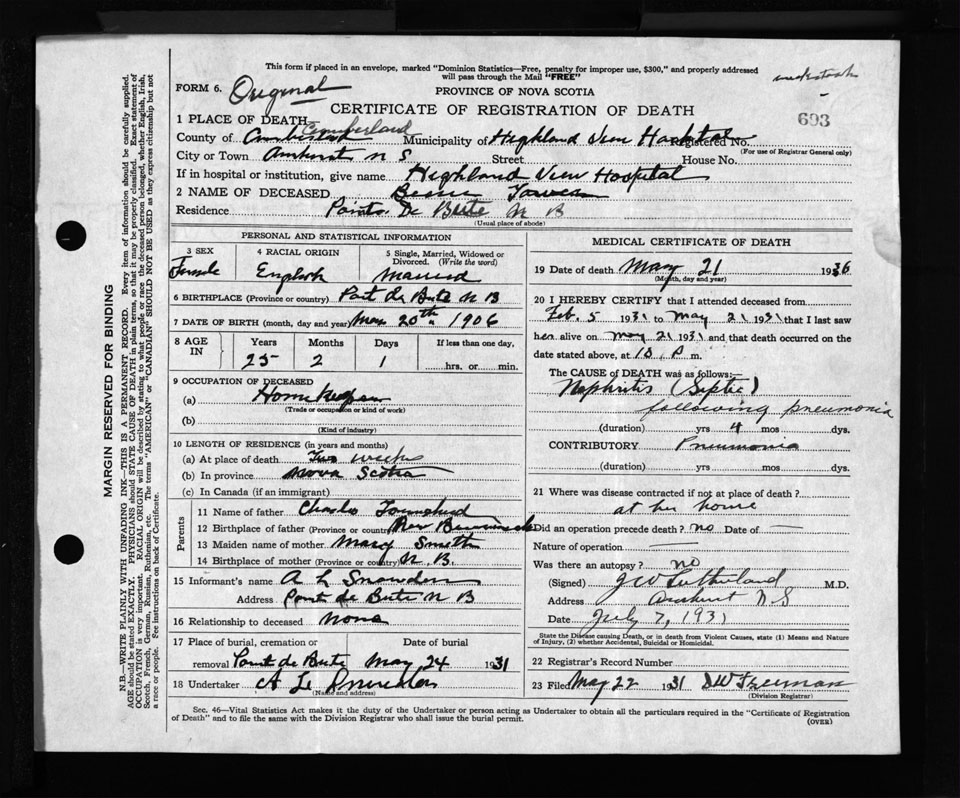 This form if placed in an envelope, marked "Dominion Statistics—Free, penalty for improper use, $300," and properly addressed
will pass through the Mail "FREE"
FORM 6. Original
PROVINCE OF NOVA SCOTIA
CERTIFICATE OF REGISTRATION OF DEATH
693
1 PLACE OF DEATH Cumberland
County of Municipality of Highland View Hospital Registered No.
(For use of Registrar General only)
City or Town Amherst N S Street House No.
If in hospital or institution, give name Highland View Hospital
2 NAME OF DECEASED Bessie Tower
Residence Point De Bute N B
(Usual place of abode)
PERSONAL AND STATISTICAL INFORMATION
3 SEX 4 RACIAL ORIGIN 5 Single, Married, Widowed or
Divorced. (Write the word)
Female English Married
6 BIRTHPLACE (Province or country) Point de Bute N B
7 DATE OF BIRTH (month, day and year) Mar 20th 1906
8 AGE IN Years Months Days If less than one day,
25 2 1 hrs. or min.
9 OCCUPATION OF DECEASED
(a) Homekeeper
(Trade or occupation or kind of work)
(b)
(Kind of industry)
10 LENGTH OF RESIDENCE (in years and months)
(a) At place of death Two weeks
(b) In province Nova Scotia
(c) In Canada (if an immigrant)
Parents
11 Name of father Charles Townshend
12 Birthplace of father (Province or country) New Brunswick
13 Maiden name of mother Mary Smith
14 Birthplace of mother (Province or country) N. B.
15 Informant's name A L Snowdon
Address Point de Bute N B
16 Relationship to deceased None
17 Place of burial, cremation or Date of burial
removal Point de Bute May 24 1931
18 Undertaker A L
(Name and address)
MEDICAL CERTIFICATE OF DEATH
19 Date of death May 21 1936
(Month, day and year)
20 I HEREBY CERTIFY that I attended deceased from
Feb. 5 1931 to May 21 1931 that I last saw
her alive on May 21 1931 and that death occurred on the
date stated above, at 10. P m.
The CAUSE of DEATH was as follows:—
Nephritis (Septic)
following pneumonia
(duration) yrs 4 mos dys.
CONTRIBUTORY Pneumonia
(duration) yrs mos dys.
21 Where was disease contracted if not at place of death?
at her home
Did an operation precede death? no Date of —
Nature of operation —
Was there an autopsy? no
(Signed) J W Sutherland M.D.
Address Amherst N S
Date July 7, 1931
State the Disease causing Death, or in death from Violent Causes, state (1) Means and Nature
of Injury, (2) whether Accidental, Suicidal or Homicidal.
22 Registrar's Record Number
23 Filed May 22 1931 Freeman
(Division Registrar)
Sec. 46—Vital Statistics Act makes it the duty of the Undertaker or person acting as Undertaker to obtain all the particulars required in the "Certificate of Registration
of Death" and to file the same with the Division Registrar who shall issue the burial permit.
(OVER)
MARGIN RESERVED FOR BINDING
N.B.—WRITE PLAINLY WITH UNFADING INK—THIS IS A PERMANENT RECORD. Every item of information should be carefully supplied.
AGE should be stated EXACTLY. PHYSICIANS should STATE CAUSE OF DEATH in plain terms, so that it may be properly classified. Exact statement of
OCCUPATION is very important. RACIAL ORIGIN will be described by stating to what people or race the deceased person belonged, whether English, Irish,
Scotch, French, German, Russian, Ruthenian, etc. The terms "AMERICAN" or "CANADIAN" SHOULD NOT BE USED as they express citizenship but not
a race or people. See instructions on back of Certificate.